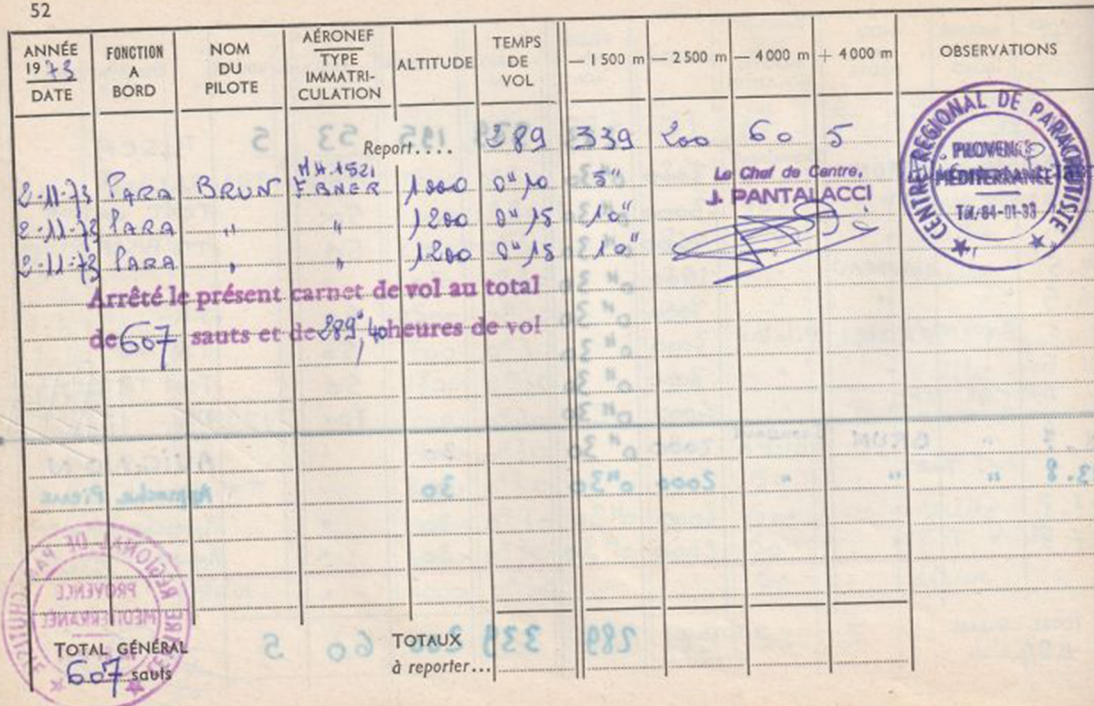 52
ANNÉE 1973 DATE
FONCTION A BORD
NOM DU PILOTE
AÉRONEF TYPE IMMATRI- CULATION
ALTITUDE
TEMPS DE VOL
— 1 500 m
— 2 500 m
— 4 000 m
+ 4 000 m
OBSERVATIONS
Report.... 289 339 200 60 5
2-11-73 PARA BRUN M.H.1521 F.BNER 1000 0"10 5"
2-11-73 PARA " " 1200 0"15 10"
2-11-73 PARA " " 1200 0"15 10"
Le Chef de Centre,
J. PANTALACCI
CENTRE REGIONAL DE PARACHUTISTE
PROVENCE
MÉDITERRANÉE
Tél. 84-01-33
Arrêté le présent carnet de vol au total
de 607 sauts et de 289",40 heures de vol
CENTRE REGIONAL DE PARACHUTISTE
PROVENCE
MÉDITERRANÉE
TOTAL GÉNÉRAL
607 sauts
TOTAUX
à reporter...